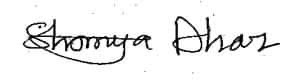 Shomya Dhar